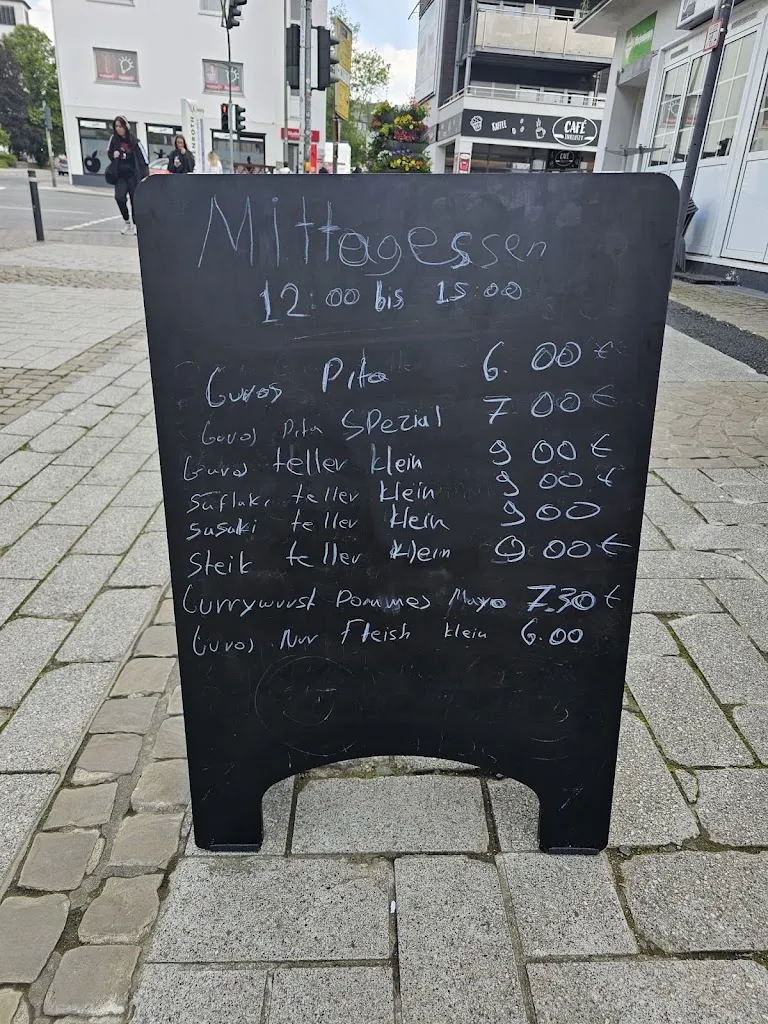 KAFFEE
CAFÉ
Mittagessen
12:00 bis 15:00
Guros Pita 6.00 €
Guros Pita SPezial 7.00 €
Guros teller klein 9.00 €
Suflaki teller klein 9.00 €
susuki teller klein 9.00
Steik teller klein 9.00 €
Currywurst Pommes Mayo 7.30 €
Guros Nur Fleish klein 6.00